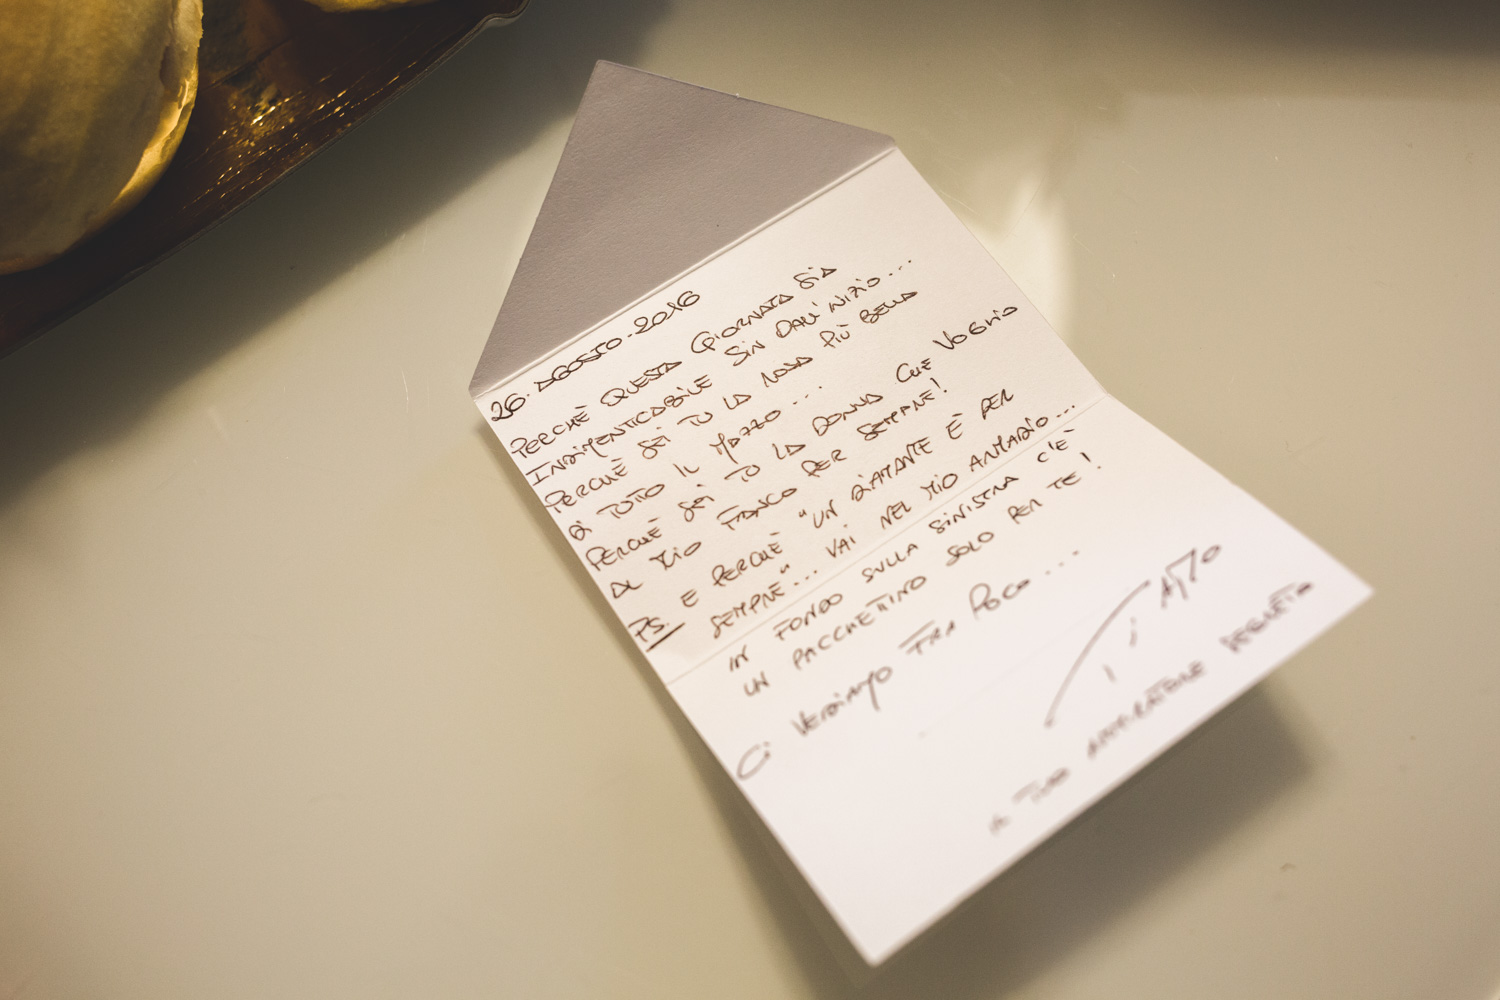 26. AGOSTO. 2016
PERCHÈ QUESTA GIORNATA SIA
INDIMENTICABILE SIN DALL'INIZIO...
PERCHÈ SEI TU LA ROSA PIÙ BELLA
DI TUTTO IL MAZZO...
PERCHÈ SEI TU LA DONNA CHE VOGLIO
AL MIO FIANCO PER SEMPRE!
PS. E PERCHÈ "UN DIAMANTE È PER
SEMPRE"... VAI NEL MIO ARMADIO...
IN FONDO SULLA SINISTRA C'È
UN PACCHETTINO SOLO PER TE!
CI VEDIAMO FRA POCO...
TI AMO
IL TUO AMMIRATORE SEGRETO